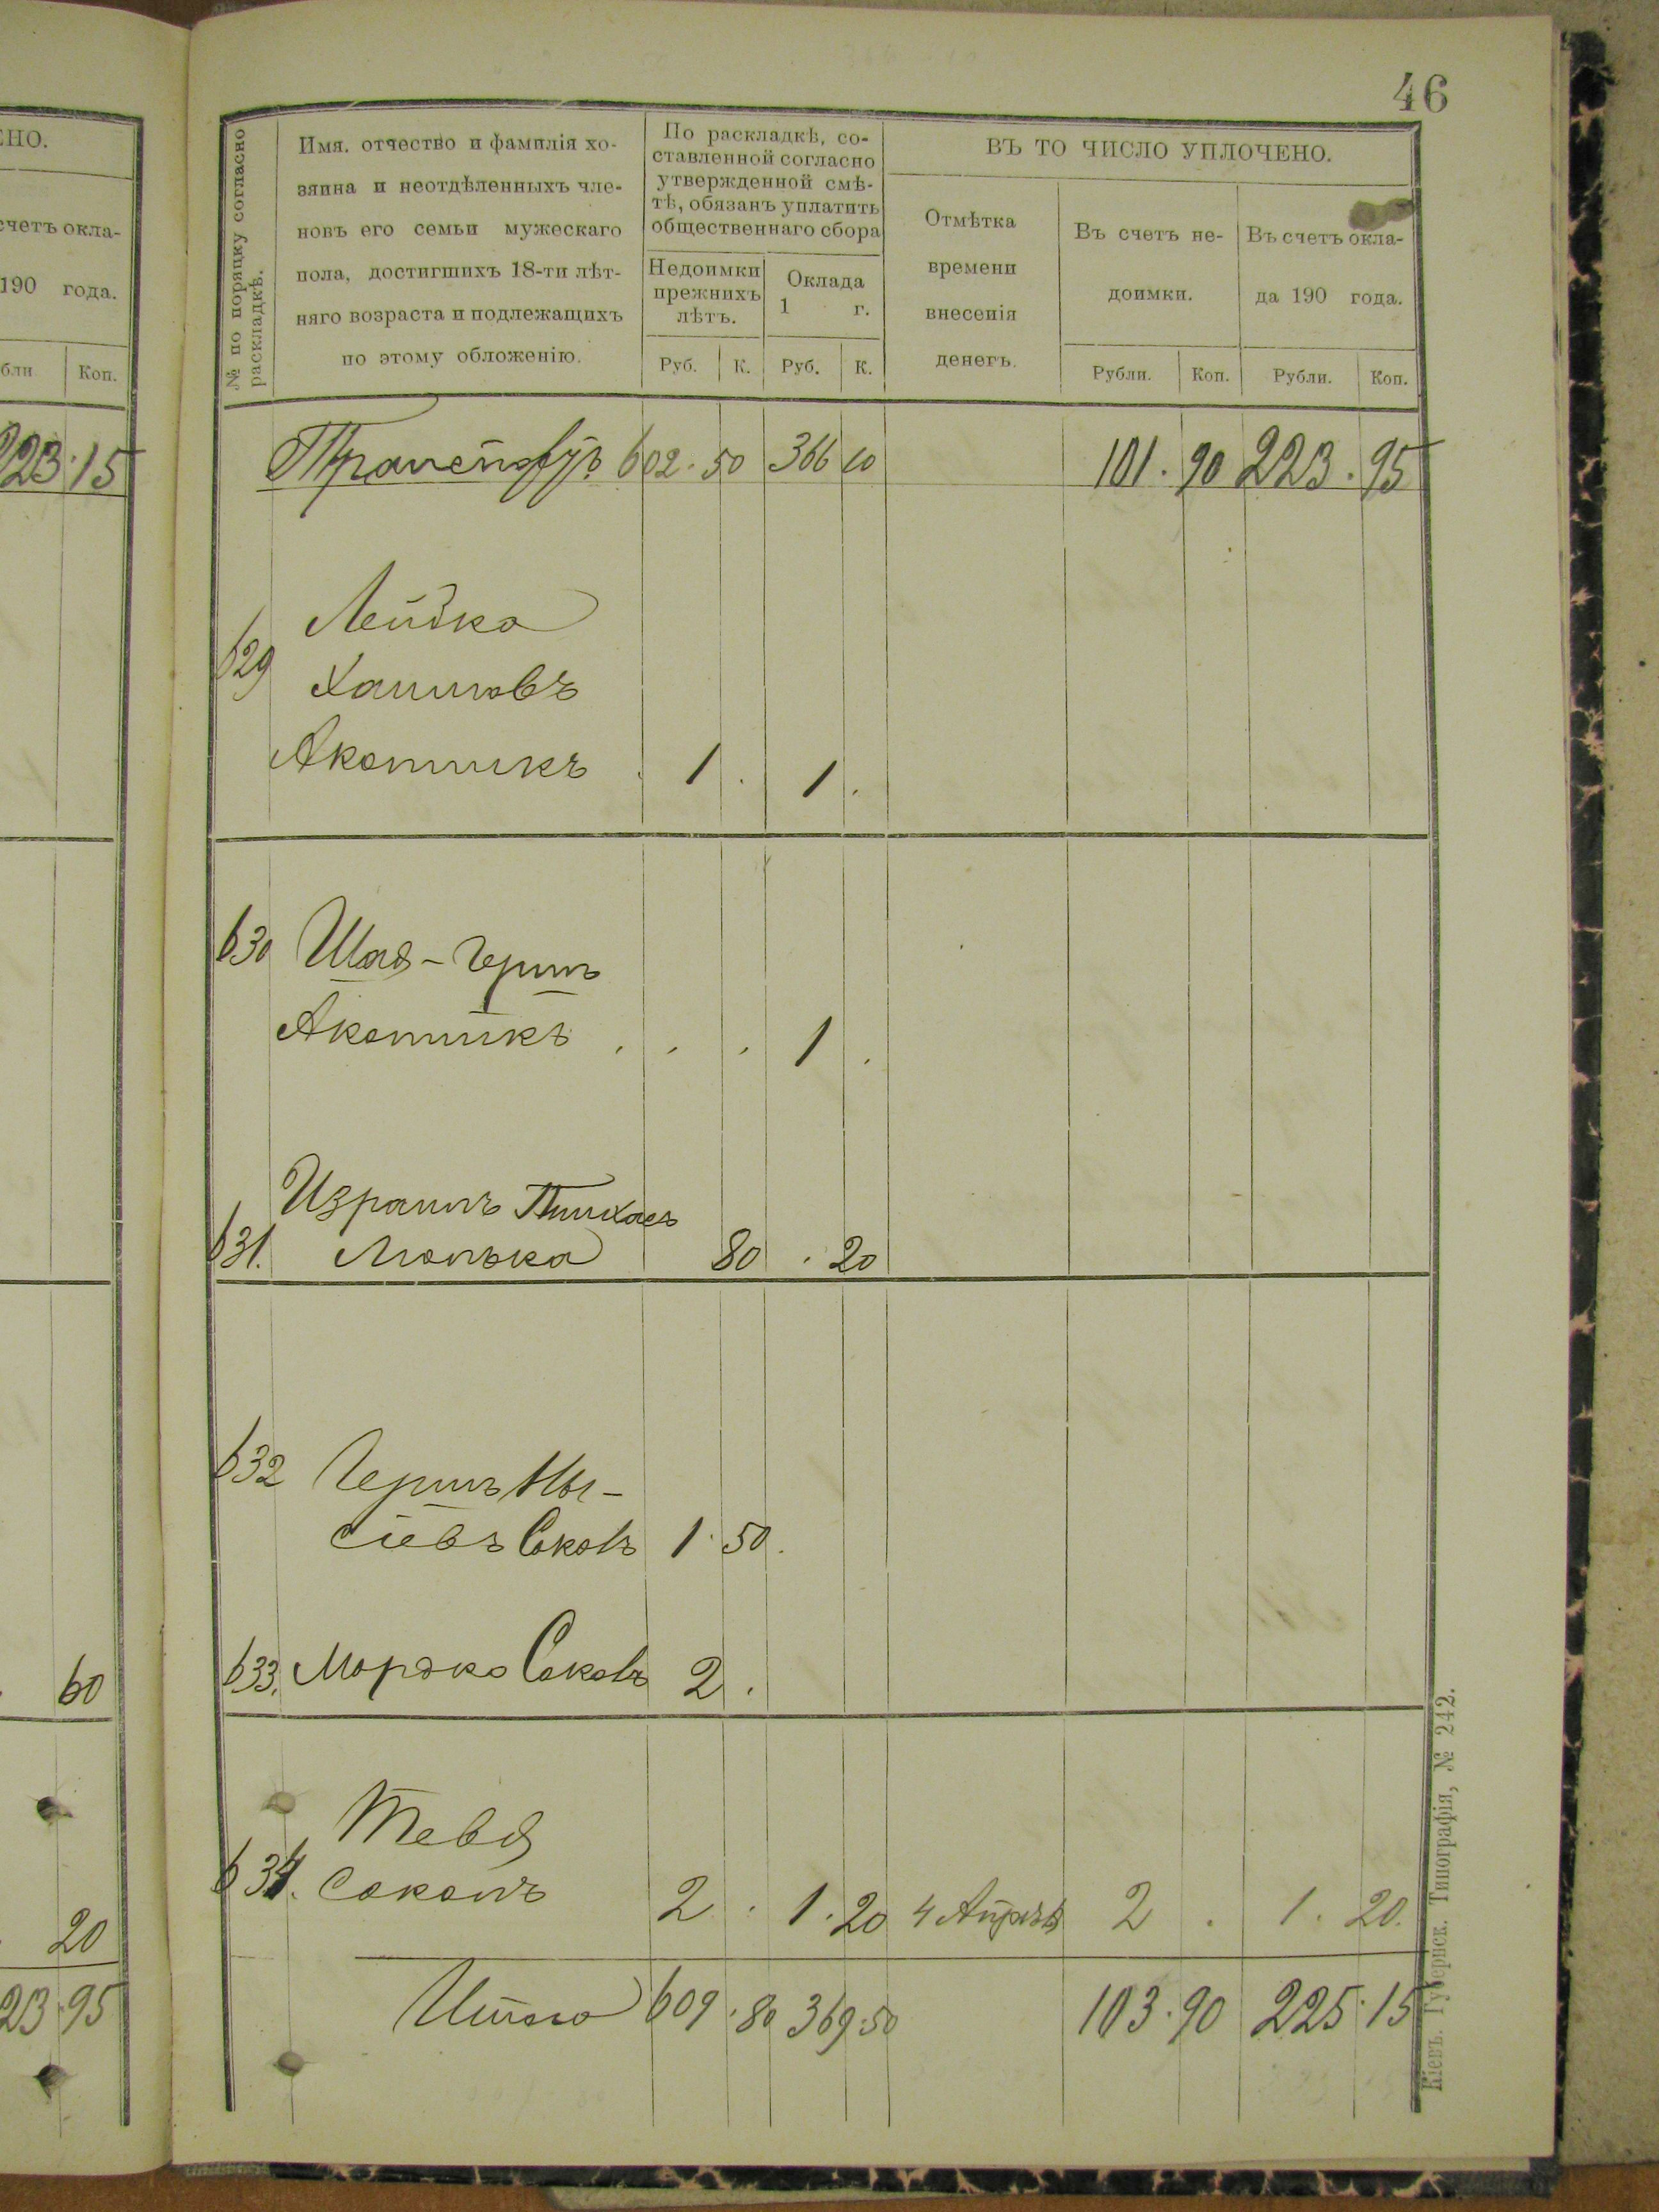 ЕНО.
счетъ окла-
190 года.
бли
Коп.
223.15
60
20
213.95
46
№ по порядку согласно
раскладкѣ.
Имя. отчество и фамилія хо-
зяина и неотдѣленныхъ чле-
новъ его семьи мужескаго
пола, достигшихъ 18-ти лѣт-
няго возраста и подлежащихъ
по этому обложенію.
По раскладкѣ, со-
ставленной согласно
утвержденной смѣ-
тѣ, обязанъ уплатить
общественнаго сбора
Недоимки
прежнихъ
лѣтъ.
Оклада
1 г.
Руб. К. Руб. К.
ВЪ ТО ЧИСЛО УПЛОЧЕНО.
Отмѣтка
времени
внесенія
денегъ.
Въ счетъ не-
доимки.
Въ счетъ окла-
да 190 года.
Рубли. Коп. Рубли. Коп.
Транспортъ 602.50 366 10 101.90 223.95
Лейзко
629
Хаимовъ
Акотникъ 1. 1.
630 Шая-Герш
Акотникъ . . . 1 .
Израиль Пинхас
631. Люлька 80 . 20
632 Гершъ Мы-
сіевъ Соколъ 1.50.
633. Мордко Соколъ 2.
Тевя
634. Соколъ 2. 1.20 4 Апрѣля 2. 1.20.
Итого 609.80 369.50 103.90 225.15
Кіевъ. Губернск. Типографія, № 242.